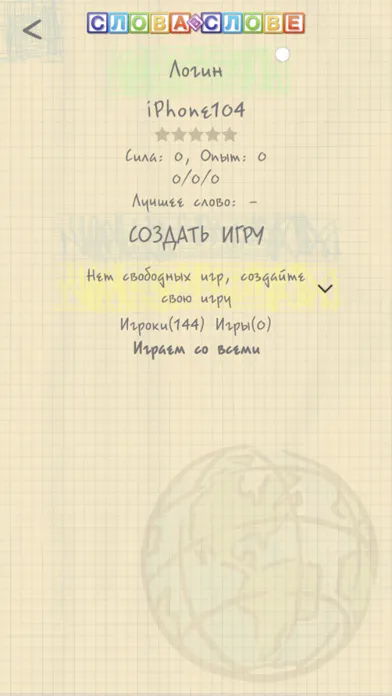 СЛОВА ИЗ СЛОВЕ
Логин
iPhone104
Сила: 0, Опыт: 0
0/0/0
Лучшее слово: -
СОЗДАТЬ ИГРУ
Нет свободных игр, создайте
свою игру
Игроки(144) Игры(0)
Играем со всеми